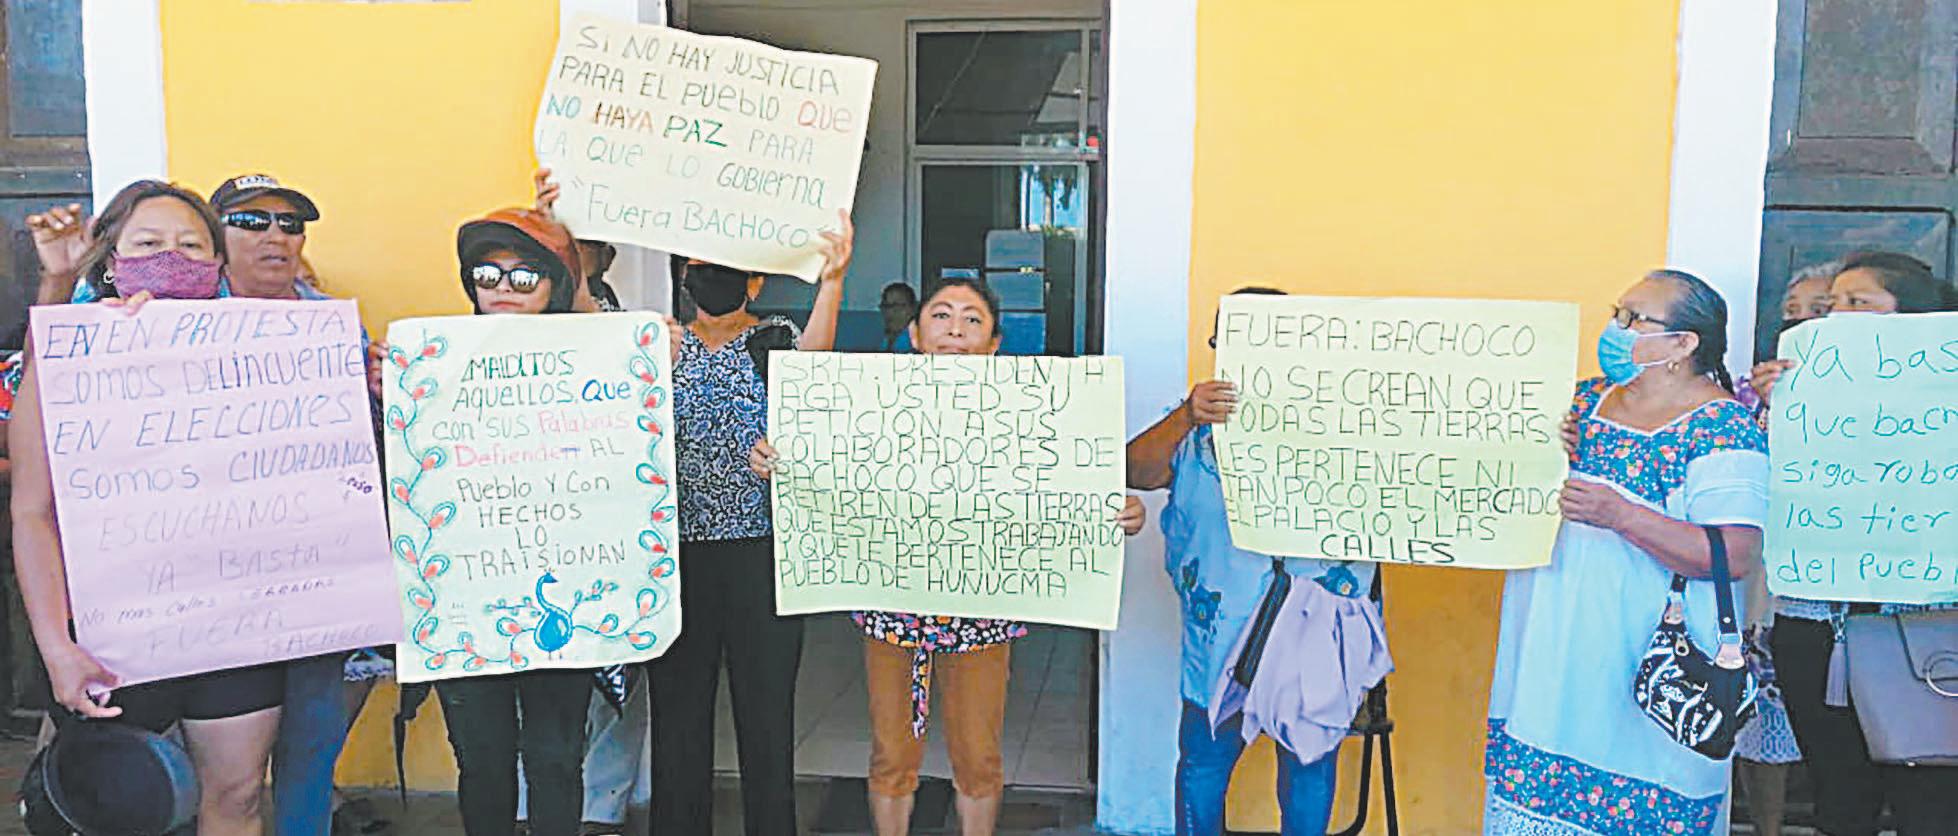 EN EN PROTESTA
SOMOS DELINCUENTE
EN ELECCIONES
SOMOS CIUDADANOS
ESCUCHANOS
YA "BASTA"
No mas Calles CERRADAS
FUERA
BACHOCO
MALDITOS
AQUELLOS QUE
CON SUS Palabras
Defienden AL
Pueblo Y Con
HECHOS
LO
TRAISIONAN
Si NO HAY JUSTICIA
PARA EL PUEBLO QUE
NO HAYA PAZ PARA
LA QUE LO GOBIERNA
"Fuera BACHOCO"
SRA. PRESIDENTA
AGA USTED SU
PETICION A SUS
COLABORADORES DE
BACHOCO QUE SE
RETIREN DE LAS TIERRAS
QUE ESTAMOS TRABAJANDO
Y QUE LE PERTENECE AL
PUEBLO DE HUNUCMA
FUERA: BACHOCO
NO SE CREAN QUE
TODAS LAS TIERRAS
LES PERTENECE NI
TAN POCO EL MERCADO
EL PALACIO Y LAS
CALLES
Ya bas
que bach
siga robo
las tier
del Puebl